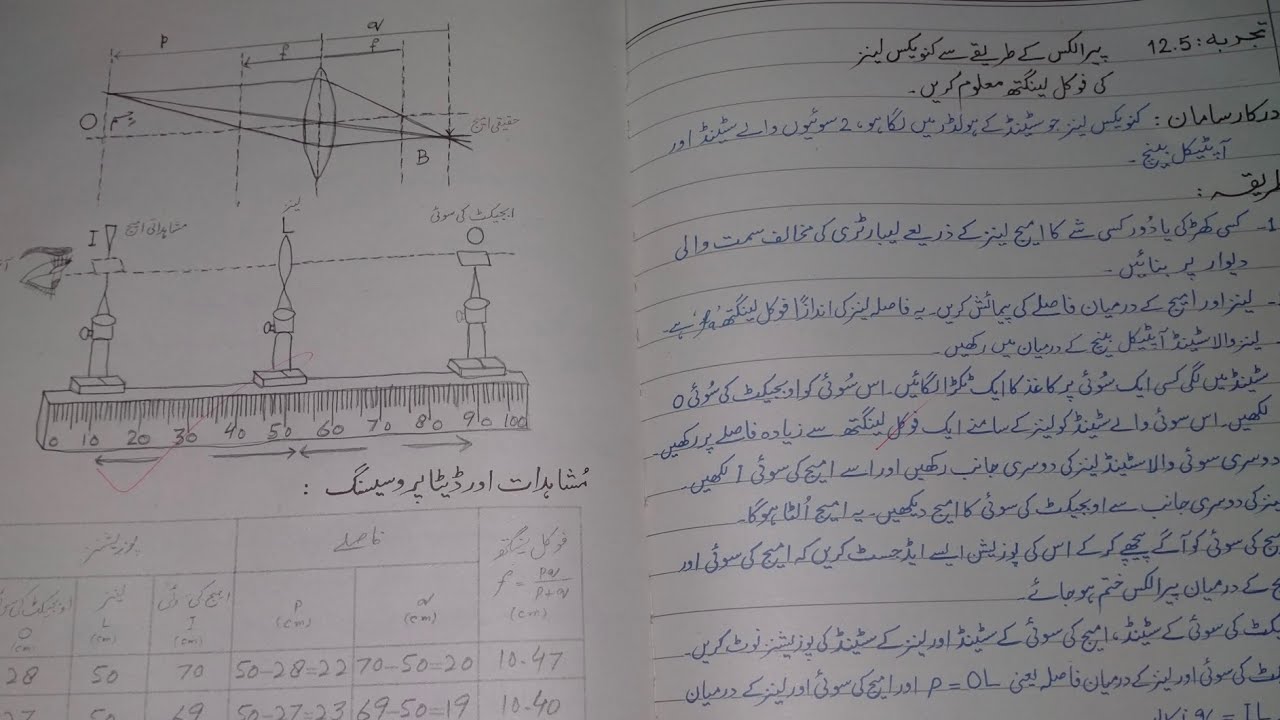 تجربہ: 12.5 پیرالکس کے طریقے سے کنویکس لینز
کی فوکل لینگتھ معلوم کریں۔
درکار سامان: کنویکس لینز جو سٹینڈ کے ہولڈر میں لگا ہو، 2 سوئیوں والے سٹینڈ اور
آپٹیکل بینچ۔
طریقہ:
1- کسی کھڑکی یا دُور کسی شے کا امیج لینز کے ذریعے لیبارٹری کی مخالف سمت والی
دیوار پر بنائیں۔
لینز اور امیج کے درمیان فاصلے کی پیمائش کریں۔ یہ فاصلہ لینز کی اندازاً فوکل لینگتھ 'f' ہے۔
لینز والا سٹینڈ آپٹیکل بینچ کے درمیان میں رکھیں۔
سٹینڈ میں لگی کسی ایک سُوئی پر کاغذ کا ایک ٹکڑا لگائیں۔ اس سُوئی کو اوبجیکٹ کی سُوئی O
لکھیں۔ اس سوئی والے سٹینڈ کو لینز کے سامنے ایک فوکل لینگتھ سے زیادہ فاصلے پر رکھیں۔
دوسری سوئی والا سٹینڈ لینز کی دوسری جانب رکھیں اور اسے امیج کی سوئی I لکھیں۔
کی دوسری جانب سے اوبجیکٹ کی سوئی کا امیج دیکھیں۔ یہ امیج اُلٹا ہوگا۔
کی سوئی کو آگے پیچھے کر کے اس کی پوزیشن ایسے ایڈجسٹ کریں کہ امیج کی سوئی اور
کے درمیان پیرالکس ختم ہو جائے۔
کی سوئی کے سٹینڈ، امیج کی سوئی کے سٹینڈ اور لینز کے سٹینڈ کی پوزیشنز نوٹ کریں۔
کی سوئی اور لینز کے درمیان فاصلہ یعنی p = OL اور امیج کی سوئی اور لینز کے درمیان
q = IL
p q
f f
O جسم
حقیقی امیج
B
لینز
L
اوبجیکٹ کی سوئی
مشاہداتی امیج
I
0 10 20 30 40 50 60 70 80 90 100
مُشاہدات اور ڈیٹا پروسیسنگ:
پوزیشنز فاصلے فوکل لینگتھ
f = pq/p+q
(cm)
O
(cm)
لینز
L
(cm)
امیج کی سوئی
I
(cm)
p
(cm)
q
(cm)
28 50 70 50-28=22 70-50=20 10.47
27 50 69 50-27=23 69-50=19 10.40